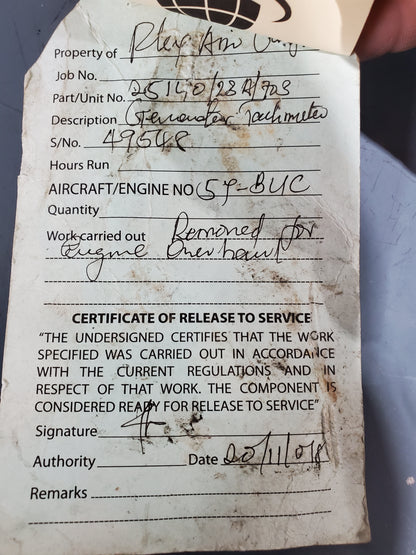 Property of Plex Air Cargo
Job No.
Part/Unit No. 25140/23A/703
Description Generator Tachimeter
S/No. 49548
Hours Run
AIRCRAFT/ENGINE NO 5Y-BUC
Quantity
Work carried out Removed for
Engine Overhaul
CERTIFICATE OF RELEASE TO SERVICE
“THE UNDERSIGNED CERTIFIES THAT THE WORK
SPECIFIED WAS CARRIED OUT IN ACCORDANCE
WITH THE CURRENT REGULATIONS AND IN
RESPECT OF THAT WORK. THE COMPONENT IS
CONSIDERED READY FOR RELEASE TO SERVICE”
Signature
Authority Date 20/11/018
Remarks